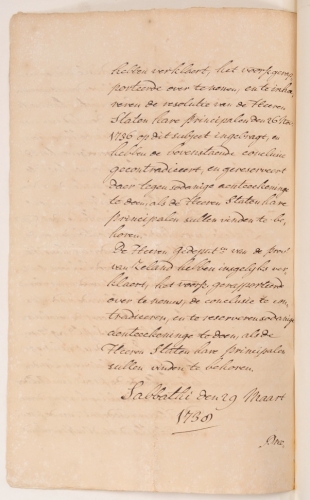 hebben verklaert, het voorsz. gerap
porteerde over te nemen, en te inhæ
reren de resolutie van de Heeren
Staten hare principalen den 26
1736 op dit subject ingebragt, en
hebben de bovenstaende conclusie
gecontradiceert, en gereserveert
daer tegen sodanige aenteekeninge
te doen, als de Heeren Staten hare
principalen sullen vinden te be-
horen.
De Heeren Gedeputt. van de prov.
van Zeland hebben ingelijks ver
klaert, het voorsz. gerapporteerde
over te nemen, de conclusie te con
tradiceren, en te reserveren sodanige
aenteekeninge te doen, als de
Heeren Staten hare principalen
sullen vinden te behoren.
Sabbathi den 29 Maart
1738